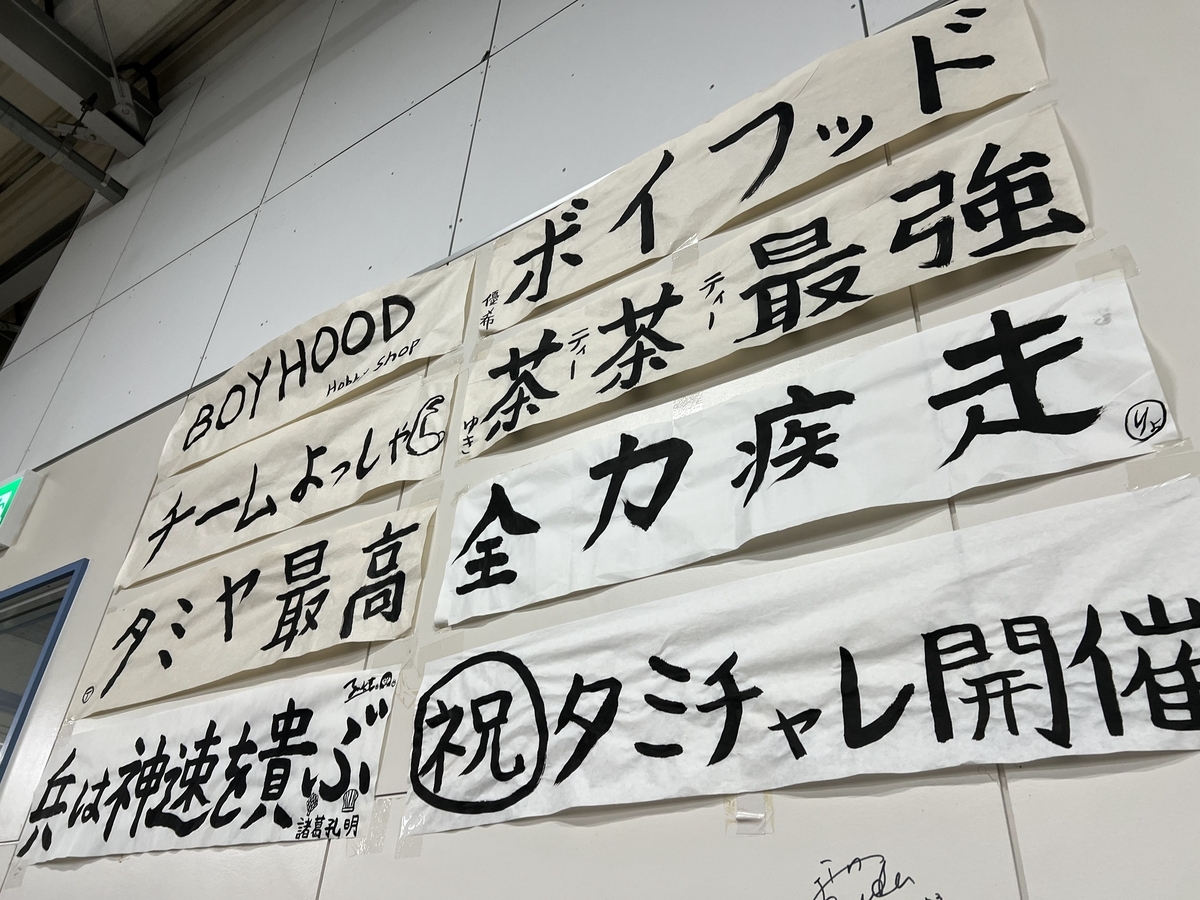 BOYHOOD
Hobby Shop
チームよっしゃ
タミヤ最高
兵は神速を貴ぶ
諸葛孔明
ボイフッド
優希
茶ティー茶ティー最強
ゆき
全力疾走
りょ
祝タミチャレ開催